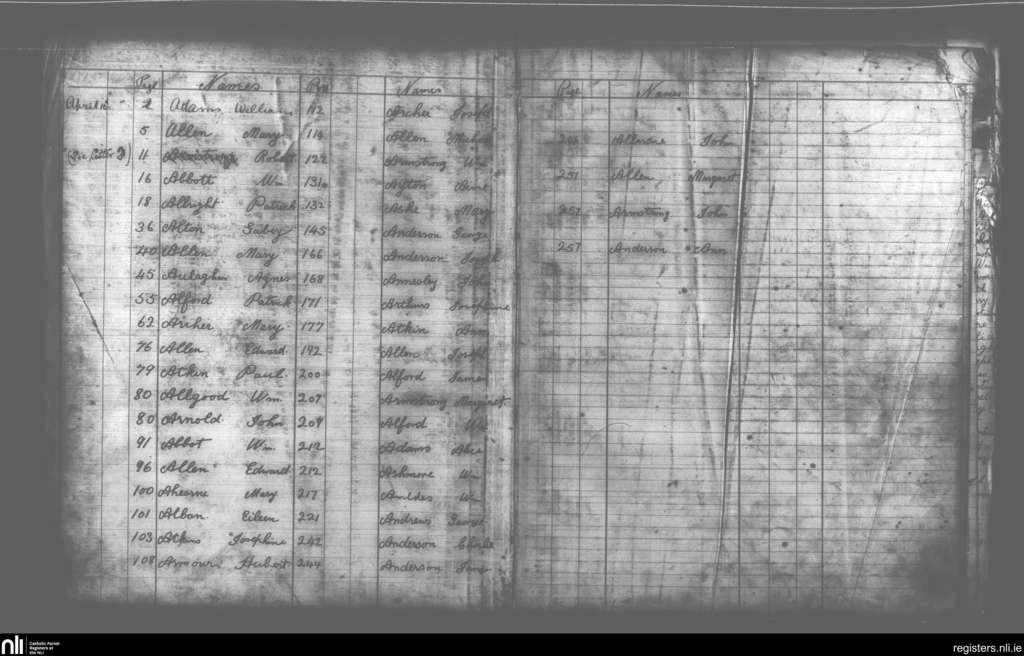 Page Names Page Names Page Names
April 2 Adams William 112 Archer Joseph
5 Allen Mary 114 Allen Michael Allerdne John
(See Letter 11 Armstrong Robert 122 Armstrong Wm
16 Abbott Wm 131 Ayton Anne 251 Allen Margaret
18 Albright Patrick 132 Ashe Mary 257 Armstrong John
36 Alton 145 Anderson George
40 Allen Mary 166 Anderson Joseph 257 Anderson Ann
45 Aulagher Agnes 168 Annesley John
55 Alford Patrick 171 Arthurs Josephine
62 Archer Mary 177 Atkin Ann
76 Allen Edward 192 Allen Joseph
79 Atkin Paul 200 Alford James
80 Allgood Wm 207 Armstrong Margaret
80 Arnold John 209 Alford Wm
91 Abbot Wm 212 Adams
96 Allen Edward 212 Ashmore Wm
100 Ahearne Mary 217 Wm
101 Alban Eileen 221 Andrews George
103 Atkins Josephine 242 Anderson Charles
108 Hubert 244 Anderson Jane
nli Catholic Parish
Registers at
the NLI
registers.nli.ie